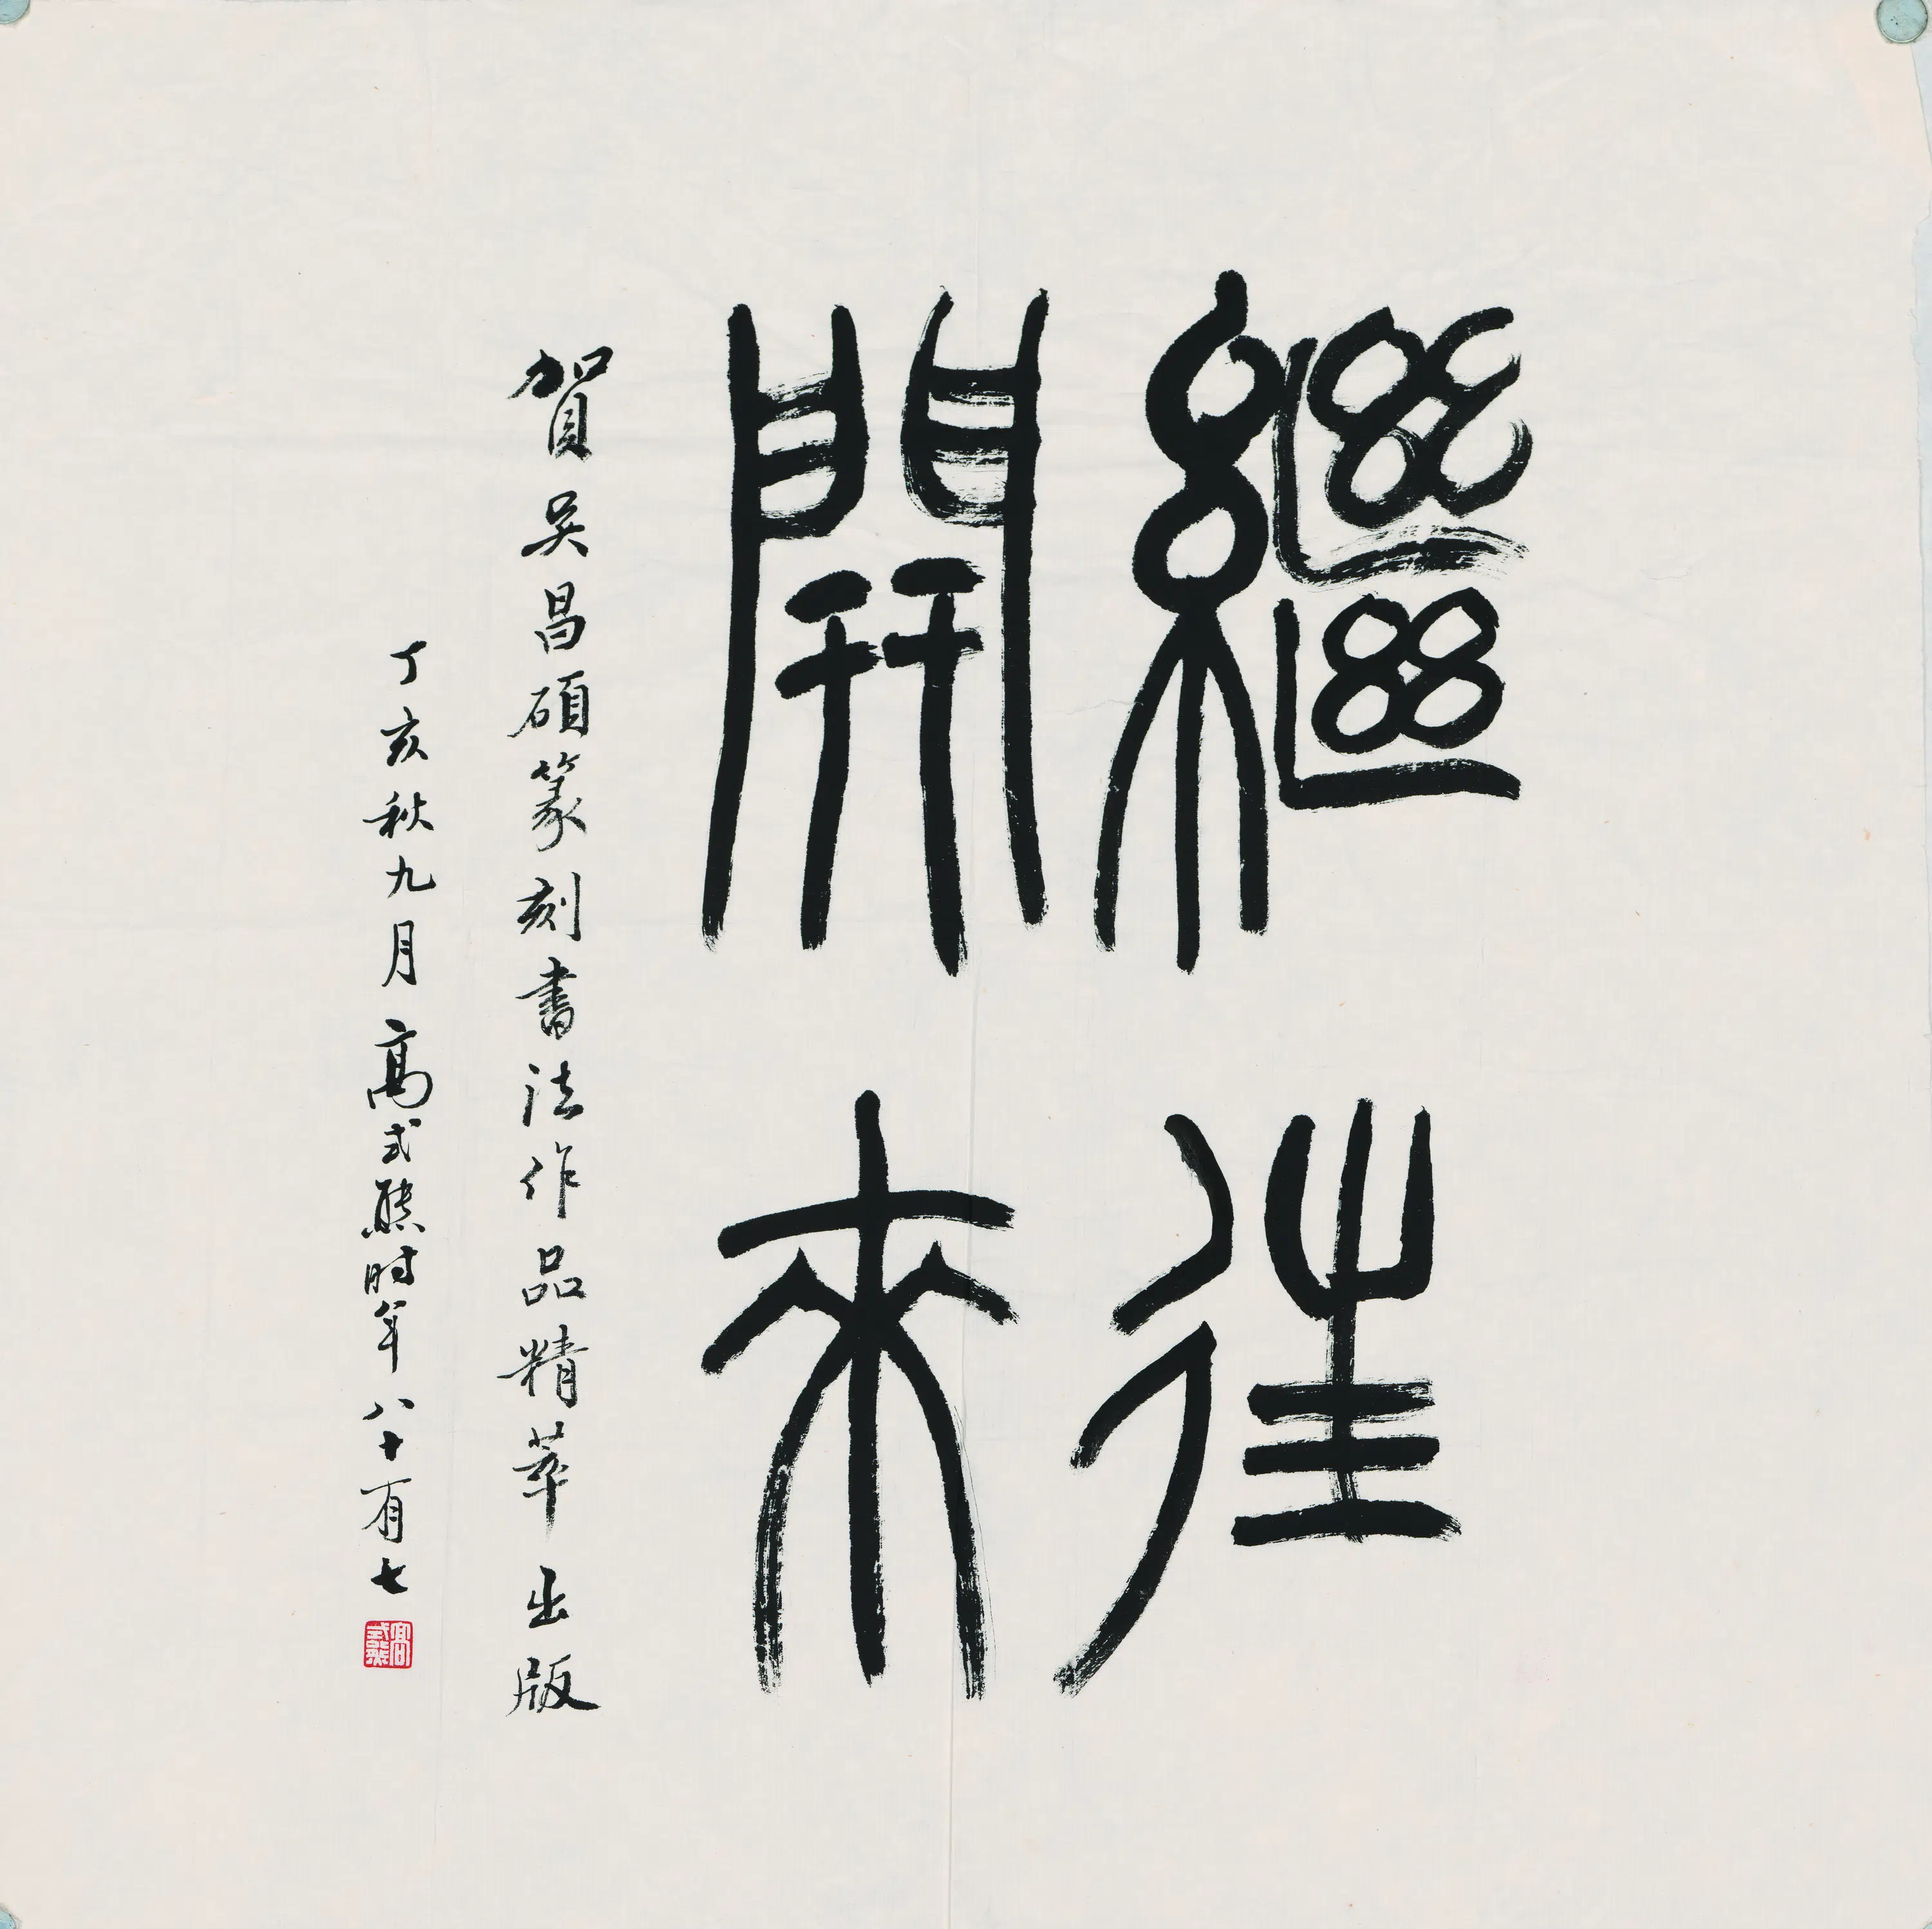 繼往
開來
賀吴昌碩篆刻書法作品精萃出版
丁亥秋九月高式熊時年八十有七
高式熊